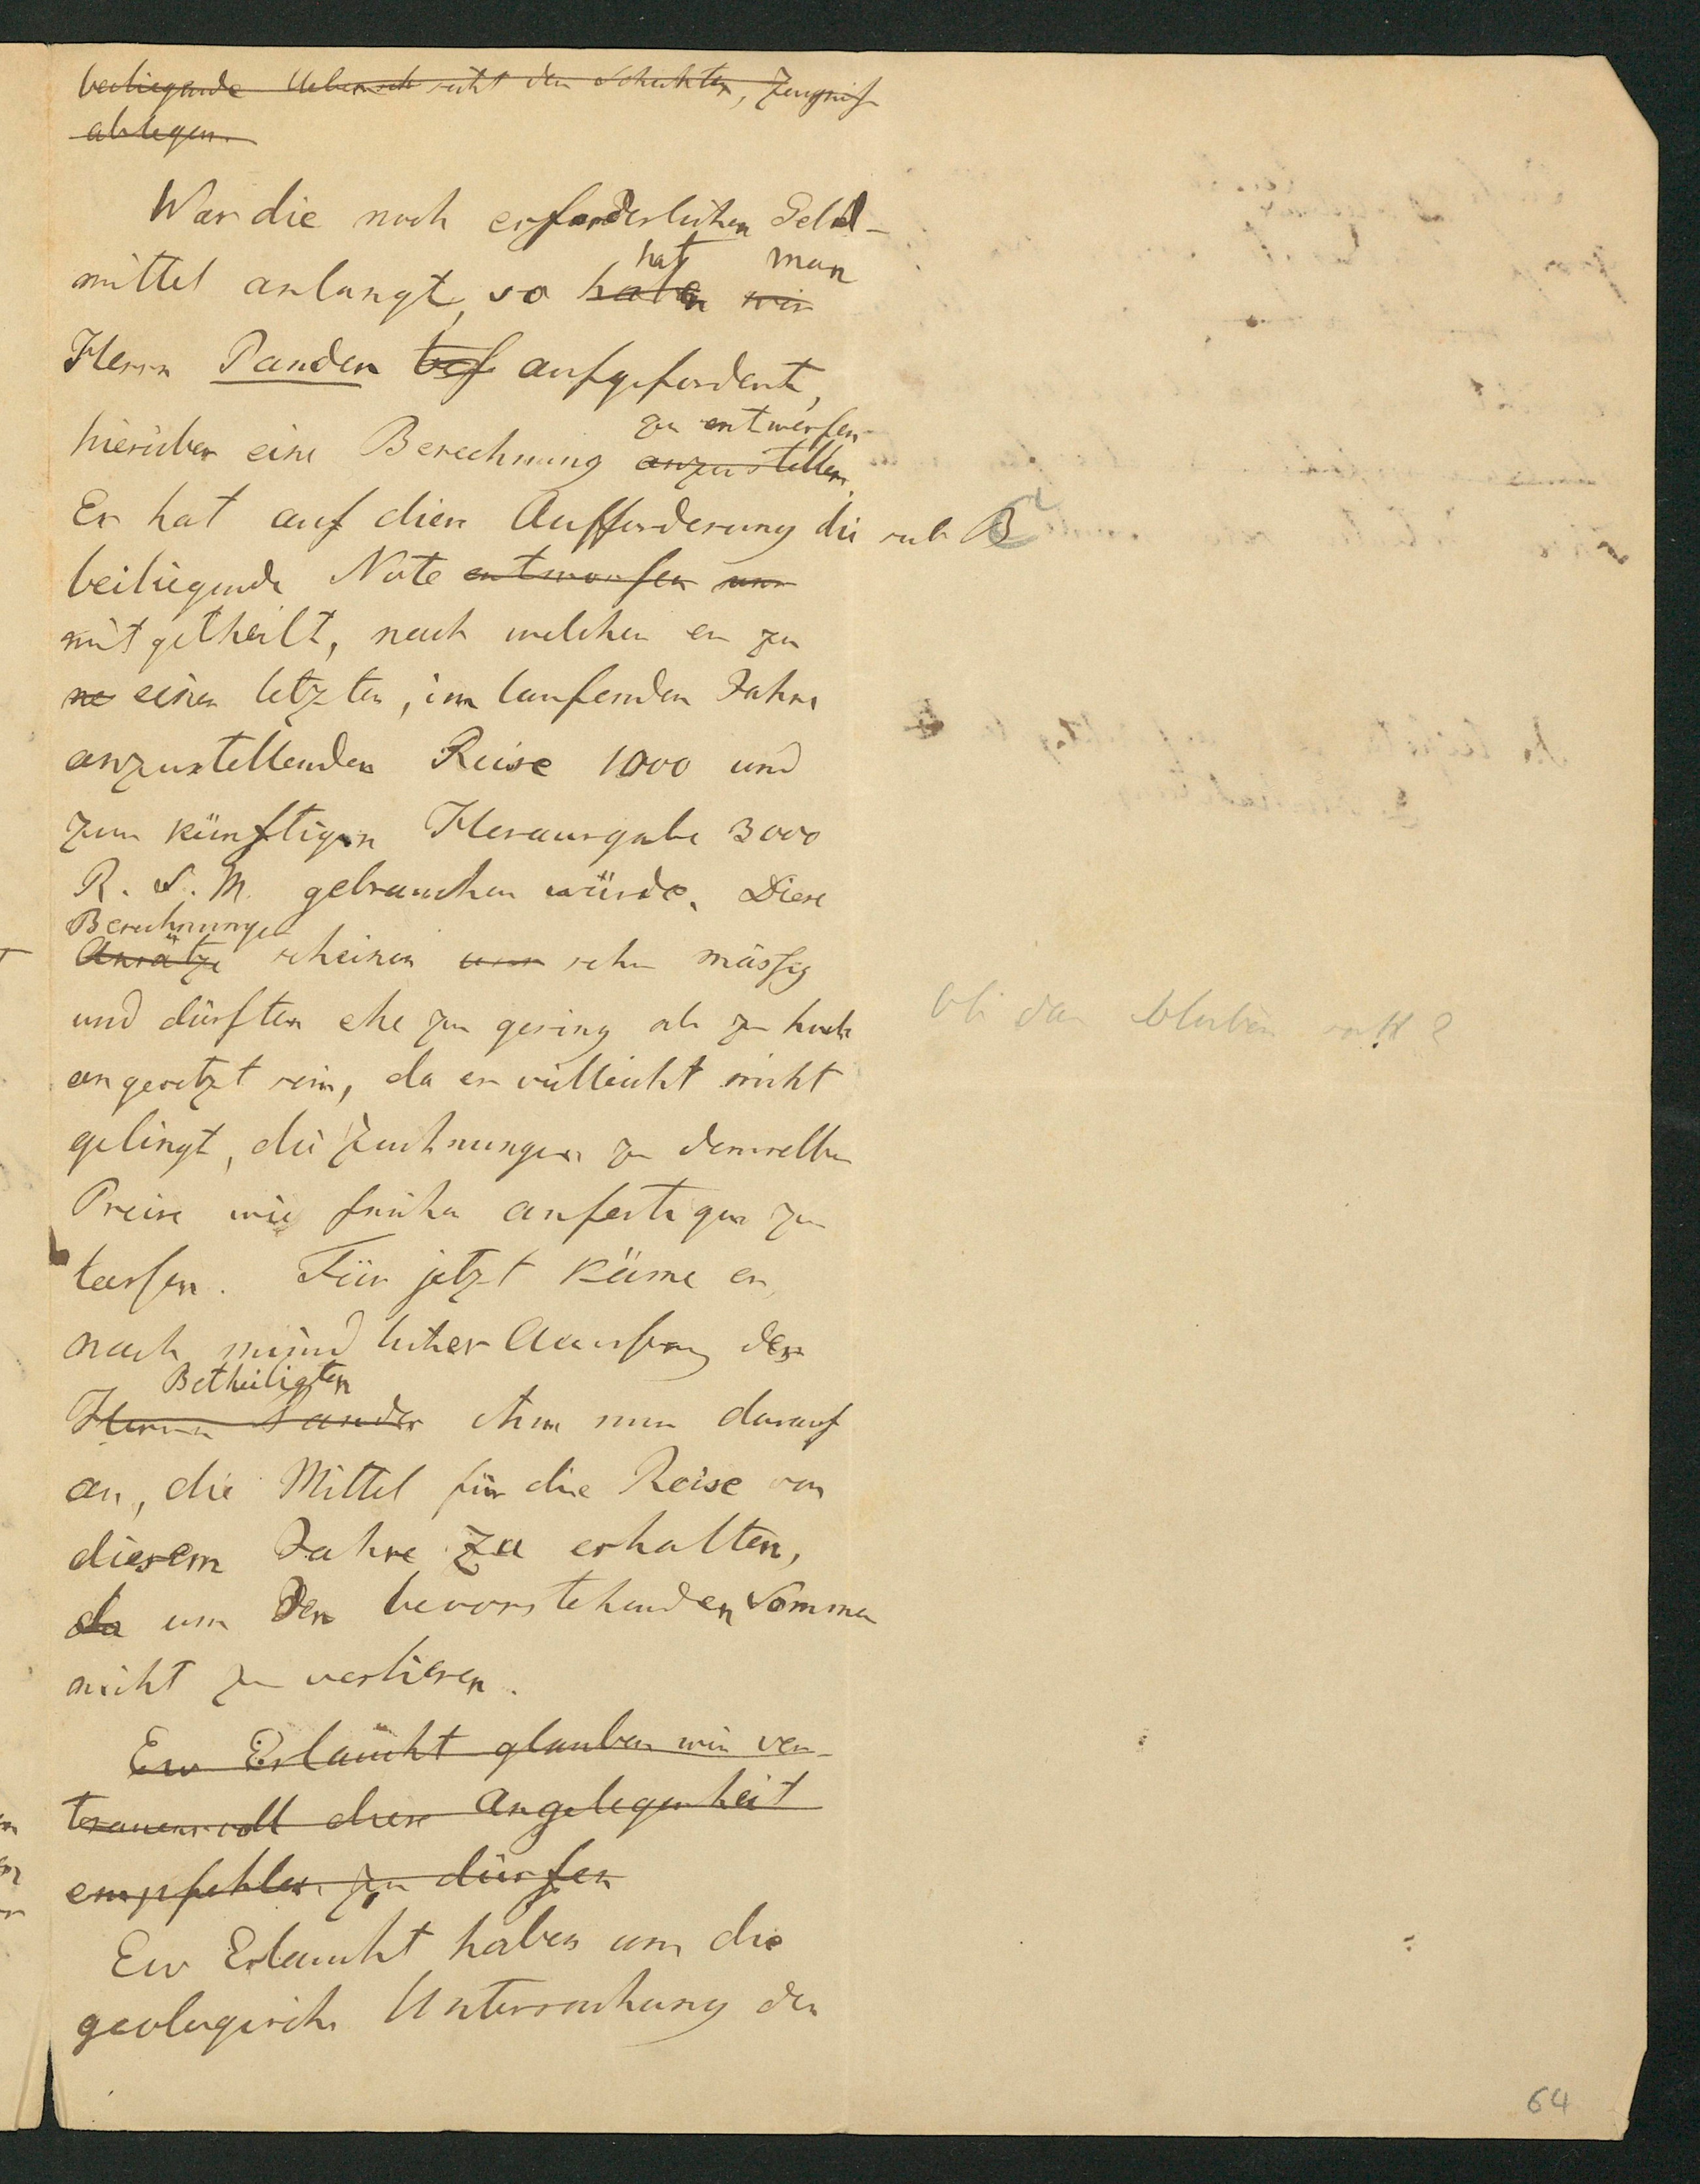 beiliegende Uebersicht der Schichten, Zeugniss
ablegen.
Was die noch erforderlichen Geld-
hat man
mittel anlangt, so haben wir
Herrn Pander bef aufgefordert,
zu entwerfen
hierüber eine Berechnung anzustellen.
Er hat auf diese Aufforderung die sub B
beiliegende Note entworfen uns
mitgetheilt, nach welcher er zu
ne einer letzten, im laufenden Jahre
anzustellenden Reise 1000 und
zur künftigen Herausgabe 3000
R. S. M. gebrauchen würde. Diese
Berechnungen
Ansätze scheinen uns sehr mässig
und dürften ehe zu gering als zu hoch
angesetzt sein, da es vielleicht nicht
gelingt, die Zeichnungen zu demselben
Preise wie früher anfertigen zu
lassen. Für jetzt käme es,
nach mündlicher Äusserung des
Betheiligten
Herrn Pander ihm nur darauf
an, die Mittel für die Reise von
diesem Jahre zu erhalten,
da um den bevorstehenden Sommer
nicht zu verlieren.
Ew Erlaucht glauben wir ver-
trauensvoll diese Angelegenheit
empfehlen zu dürfen
Ew Erlaucht haben um die
geologische Untersuchung der
ob das bleiben soll?
64